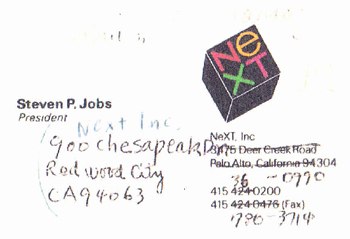 NeXT
Steven P. Jobs
President
Next Inc.
900 chesapeak Dr
Redwood City
CA 94063
NeXT, Inc
3475 Deer Creek Road
Palo Alto, California 94304
36 - 0990
415 424 0200
415 424-0476 (Fax)
780-3714